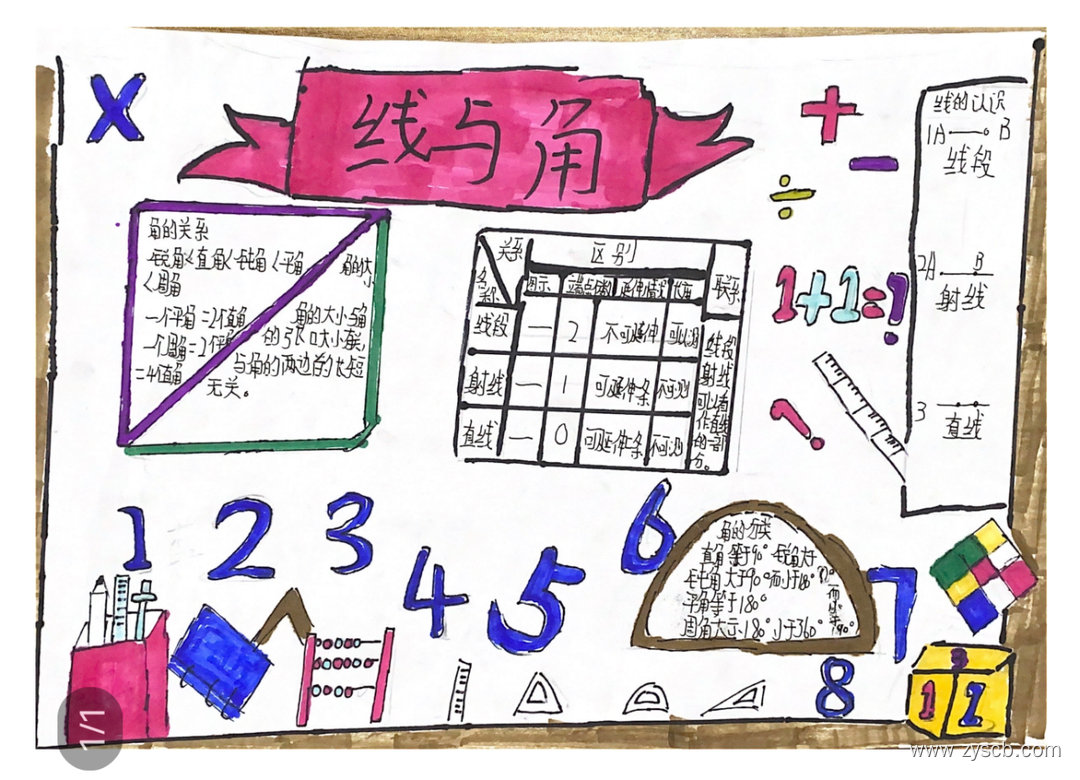 X
线与角
+
−
÷
1+1=?
?
角的关系
锐角<直角<钝角<平角
<周角
一个平角=2个直角
一个周角=2个平角
=4个直角
角的大小与角
的张口大小有关,
与角的两边的长短
无关。
关系
名称
区别
联系
图示
端点个数
延伸情况
长度
线段
—
2
不可延伸
可测
射线
—
1
可延伸一条
不可测
直线
—
0
可延伸二条
不可测
线段
射线
可以看
作直线
的一部
分。
线的认识
1A B
线段
2A B
射线
3
直线
1
2
3
4
5
6
7
8
角的分类
直角等于90°
钝角大于90°而小于180°
平角等于180°
3
1
2
1/1
www.zyscb.com